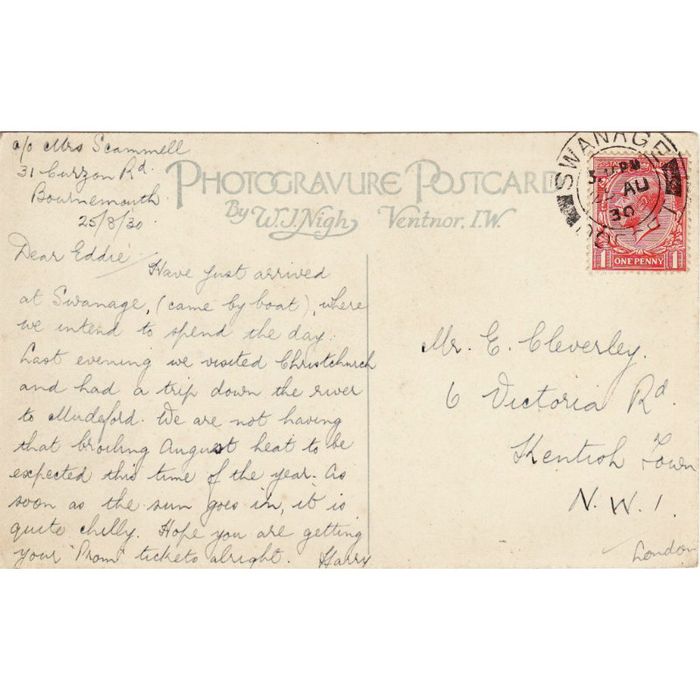 c/o Mrs Scammell
31 Curzon Rd.
Bournemouth
25/8/30.
PHOTOGRAVURE POSTCARD
By W.J. Nigh, Ventnor, I.W.
Dear Eddie, Have just arrived
at Swanage, (came by boat), where
we intend to spend the day.
Last evening we visited Christchurch
and had a trip down the river
to Mudeford. We are not having
that broiling August heat to be
expected this time of the year. As
soon as the sun goes in, it is
quite chilly. Hope you are getting
your 'Prom' tickets alright. Harry
SWANAGE
PM
AU
30
1 ONE PENNY 1
Mr. E. Cleverley.
6 Victoria Rd.
Kentish Town
N.W.1.
London